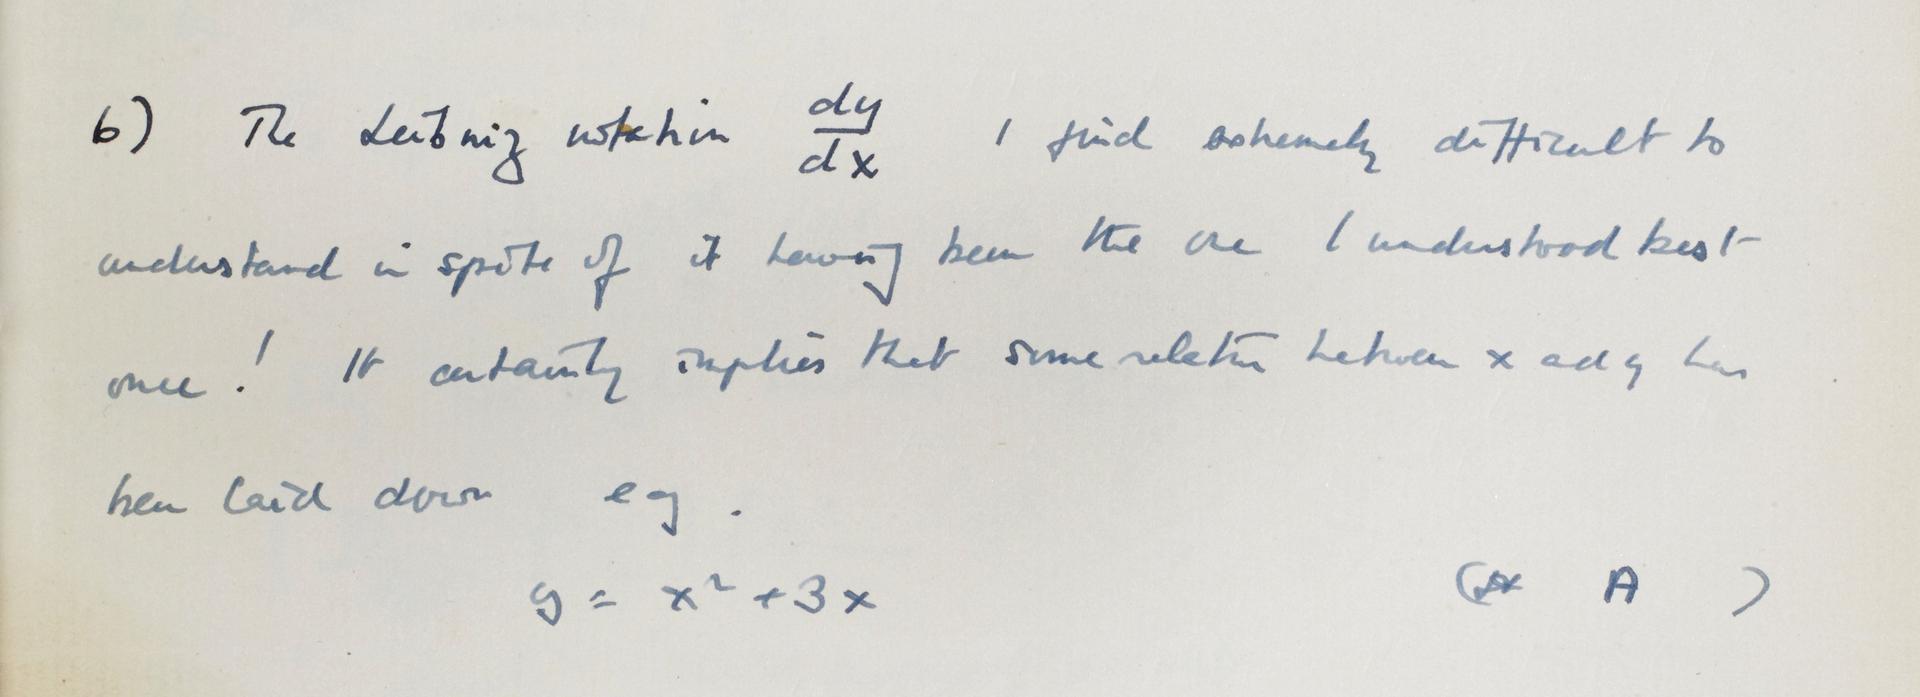 6) The Leibniz notation dy/dx I find extremely difficult to
understand in spite of it having been the one I understood best
once! It certainly implies that some relation between x and y has
been laid down eg.
y = x² + 3x (A)